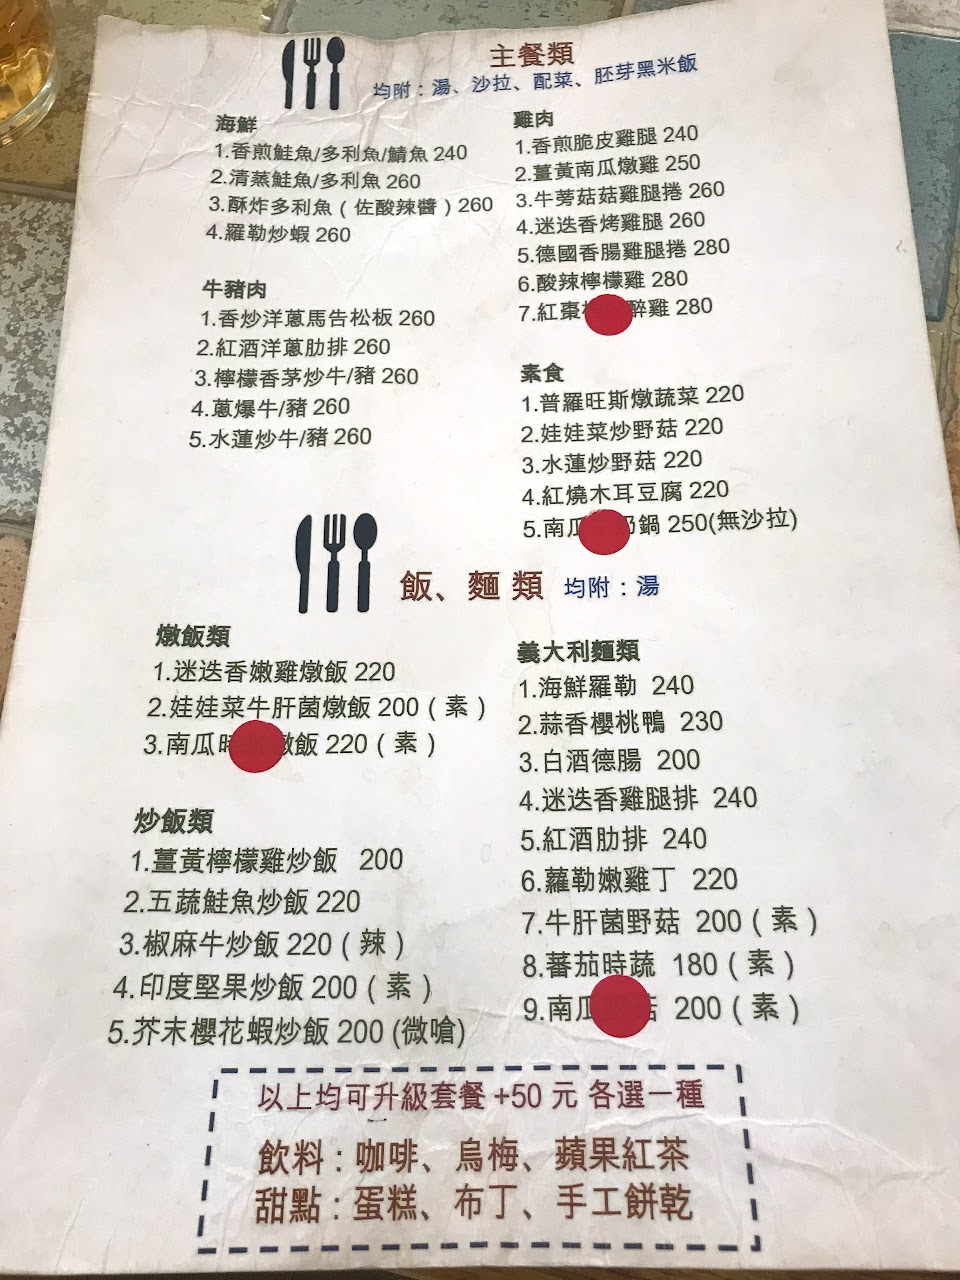 主餐類
均附：湯、沙拉、配菜、胚芽黑米飯
海鮮
1.香煎鮭魚/多利魚/鯖魚 240
2.清蒸鮭魚/多利魚 260
3.酥炸多利魚（佐酸辣醬）260
4.羅勒炒蝦 260
牛豬肉
1.香炒洋蔥馬告松板 260
2.紅酒洋蔥肋排 260
3.檸檬香茅炒牛/豬 260
4.蔥爆牛/豬 260
5.水蓮炒牛/豬 260
雞肉
1.香煎脆皮雞腿 240
2.薑黃南瓜燉雞 250
3.牛蒡菇菇雞腿捲 260
4.迷迭香烤雞腿 260
5.德國香腸雞腿捲 280
6.酸辣檸檬雞 280
7.紅棗 醉雞 280
素食
1.普羅旺斯燉蔬菜 220
2.娃娃菜炒野菇 220
3.水蓮炒野菇 220
4.紅燒木耳豆腐 220
5.南瓜 奶鍋 250(無沙拉)
飯、麵 類 均附：湯
燉飯類
1.迷迭香嫩雞燉飯 220
2.娃娃菜牛肝菌燉飯 200（素）
3.南瓜時 燉飯 220（素）
炒飯類
1.薑黃檸檬雞炒飯 200
2.五蔬鮭魚炒飯 220
3.椒麻牛炒飯 220（辣）
4.印度堅果炒飯 200（素）
5.芥末櫻花蝦炒飯 200 (微嗆)
義大利麵類
1.海鮮羅勒 240
2.蒜香櫻桃鴨 230
3.白酒德腸 200
4.迷迭香雞腿排 240
5.紅酒肋排 240
6.蘿勒嫩雞丁 220
7.牛肝菌野菇 200（素）
8.蕃茄時蔬 180（素）
9.南瓜 菇 200（素）
以上均可升級套餐 +50 元 各選一種
飲料：咖啡、烏梅、蘋果紅茶
甜點：蛋糕、布丁、手工餅乾